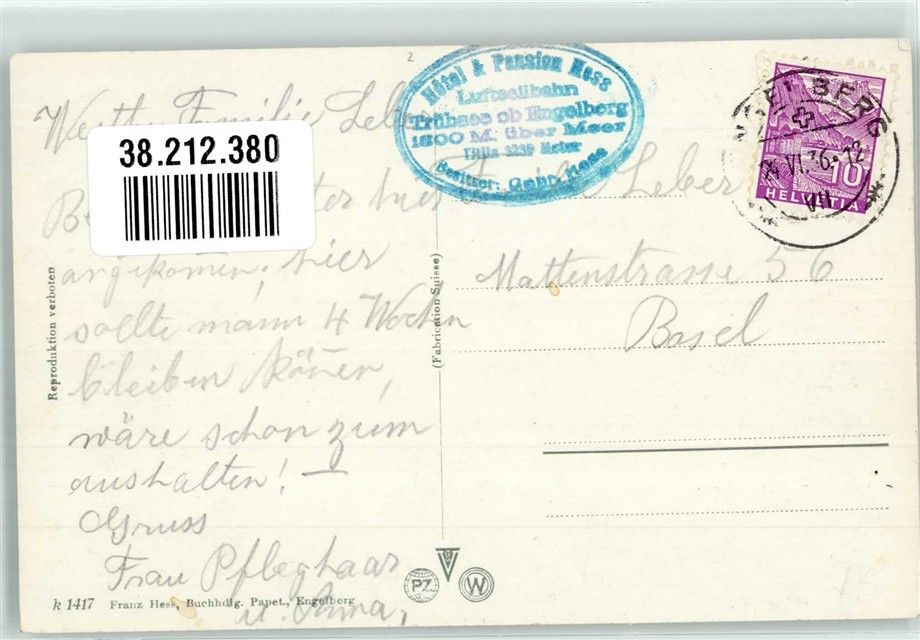 Hôtel & Pension Hess
Luftseilbahn
Trübsee ob Engelberg
1800 M. über Meer
Titlis 3239 Meter
Besitzer: Gebr. Hess
ENGELBERG
VI. 36. 12
VII
10
HELVETIA
38.212.380
Werth. Familie Leber
hier
angekomen, hier
sollte mann 4 Wochen
bleiben könen,
wäre schon zum
aushalten! —
Gruss
Frau Pfleghaar
u. Anna,
Familie Leber
Mattenstrasse 56
Basel
Reproduktion verboten
(Fabrication Suisse)
PZ
W
k 1417 Franz Hess, Buchhdlg. Papet., Engelberg